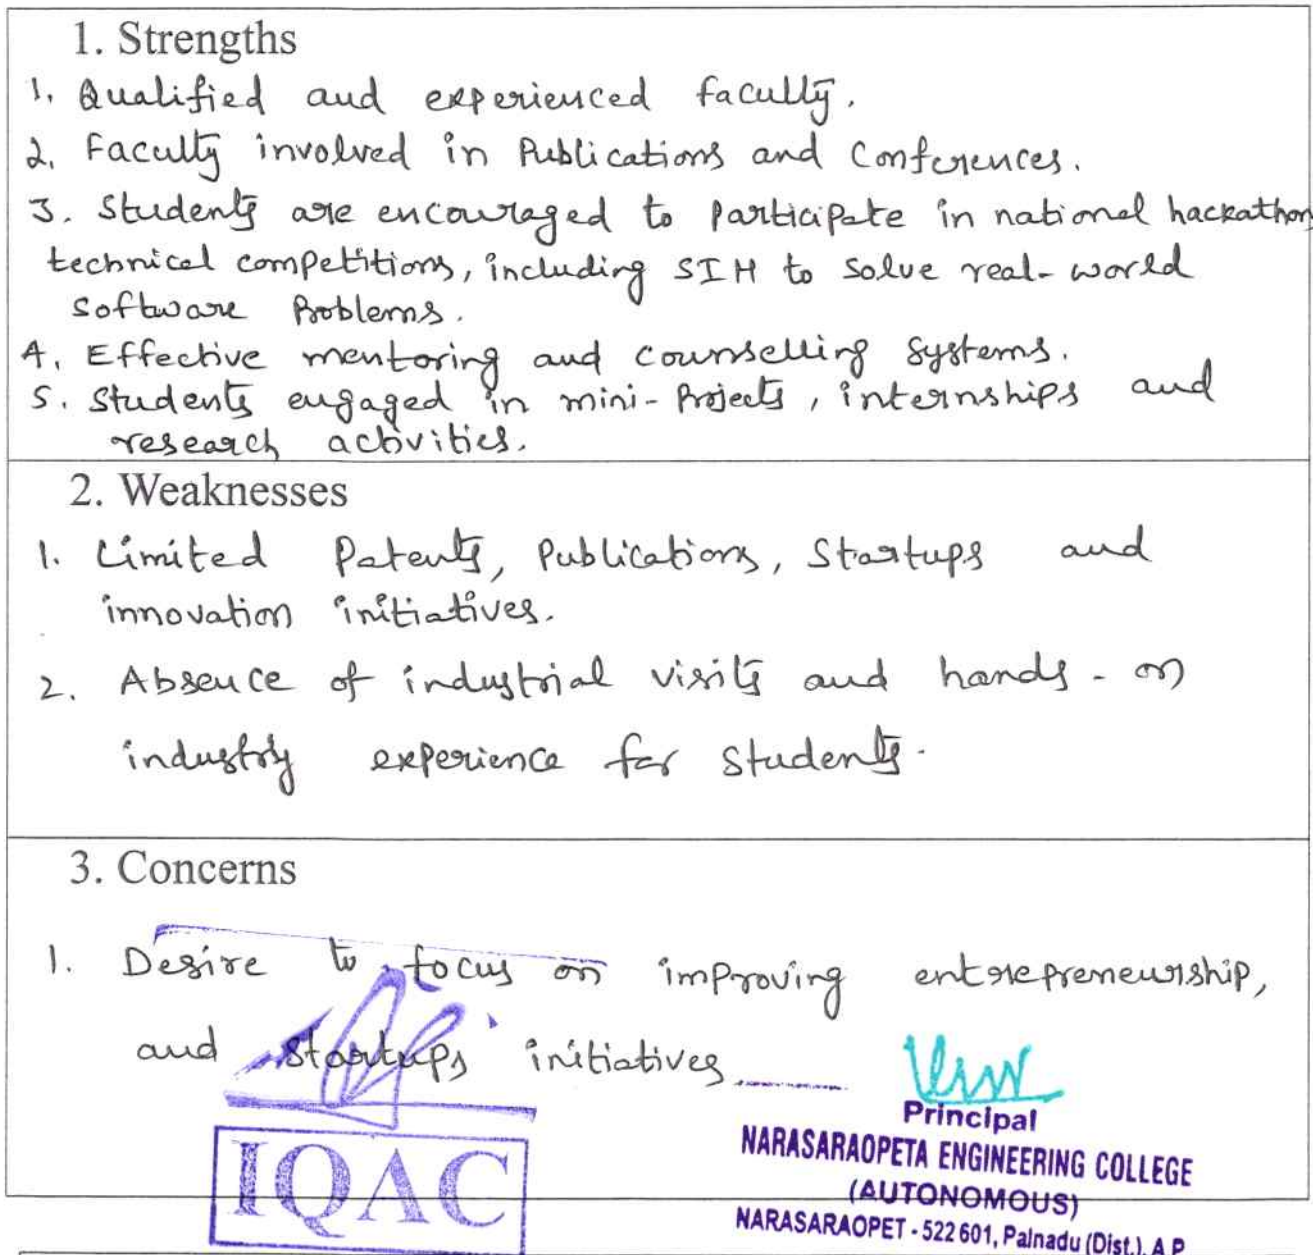 1. Strengths
1. Qualified and experienced faculty.
2. Faculty involved in Publications and Conferences.
3. Students are encouraged to participate in national hackathons
technical competitions, including SIH to solve real-world
software Problems.
4. Effective mentoring and counselling systems.
5. Students engaged in mini-Projects, internships and
research activities.
2. Weaknesses
1. Limited Patents, Publications, Startups and
innovation initiatives.
2. Absence of industrial visits and hands-on
industry experience for students.
3. Concerns
1. Desire to focus on improving entrepreneurship,
and startups initiatives
Principal
NARASARAOPETA ENGINEERING COLLEGE
(AUTONOMOUS)
NARASARAOPET - 522 601, Palnadu (Dist.), A.P.
IQAC